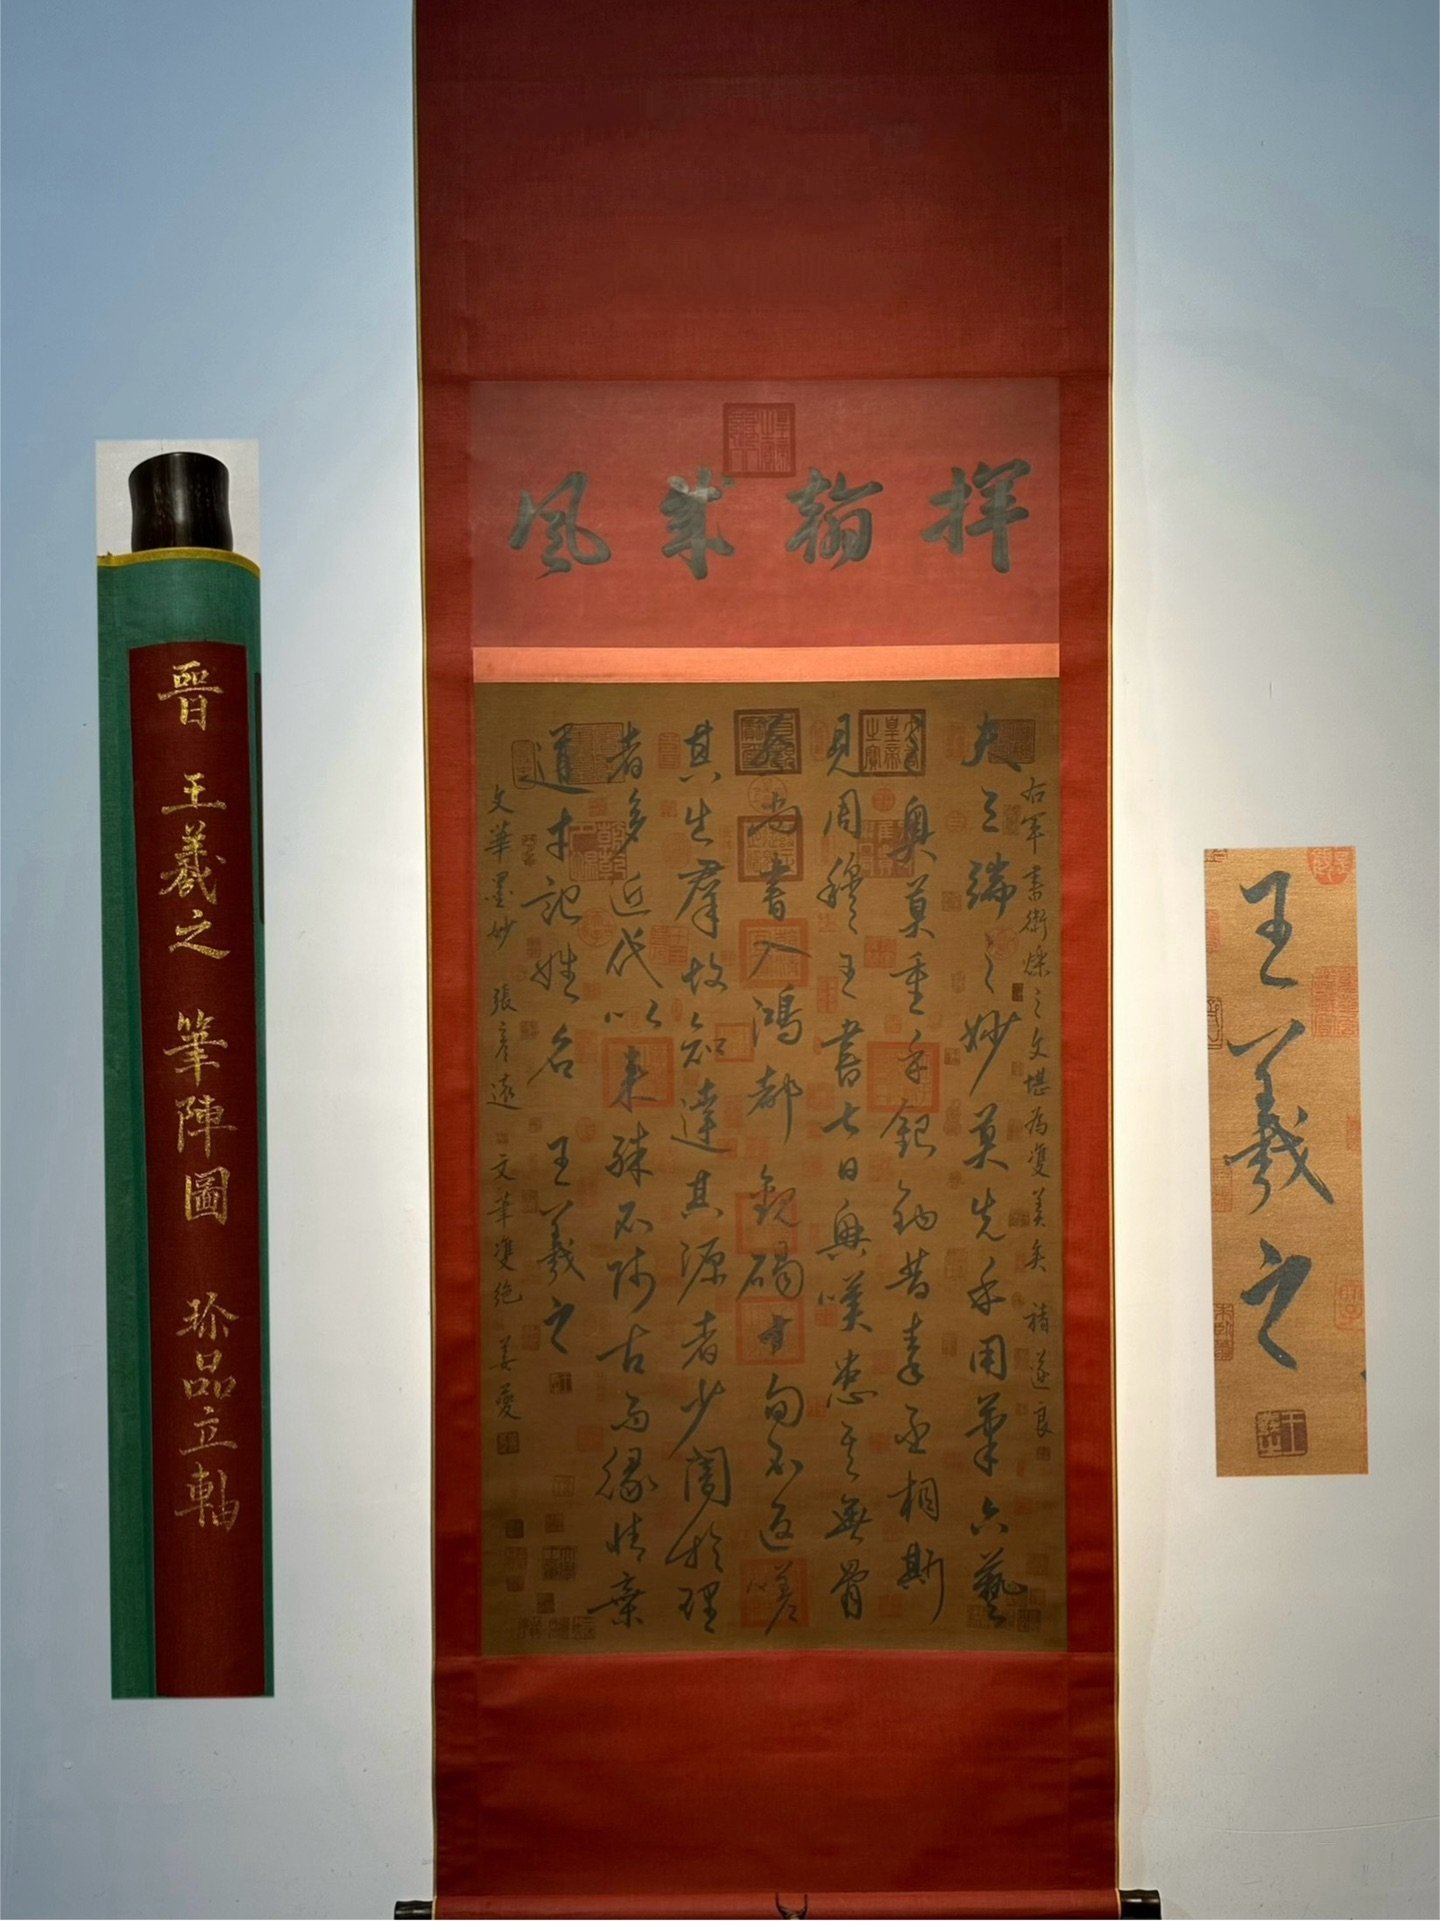 揮翰成風
右軍書術爍之文堪為雙美矣 褚遂良
夫三端之妙莫先乎用筆六藝
之奧莫重乎銀鉤昔秦丞相斯
見周穆王書七日興嘆患其無骨
蔡尚書入鴻都觀碣十旬不返嗟
其出羣故知達其源者少闇於理
者多近代以來殊不師古而緣情棄
道才記姓名 王羲之
文華墨妙 張彥遠 文筆雙絕 姜夔
晉 王羲之 筆陣圖 珍品立軸
王羲之